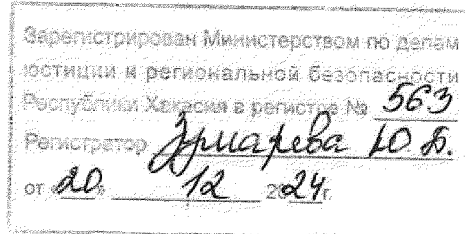 Зарегистрирован Министерством по делам
юстиции и региональной безопасности
Республики Хакасия в регистре № 563
Регистратор Ю. Б.
от «20» 12 2024г.